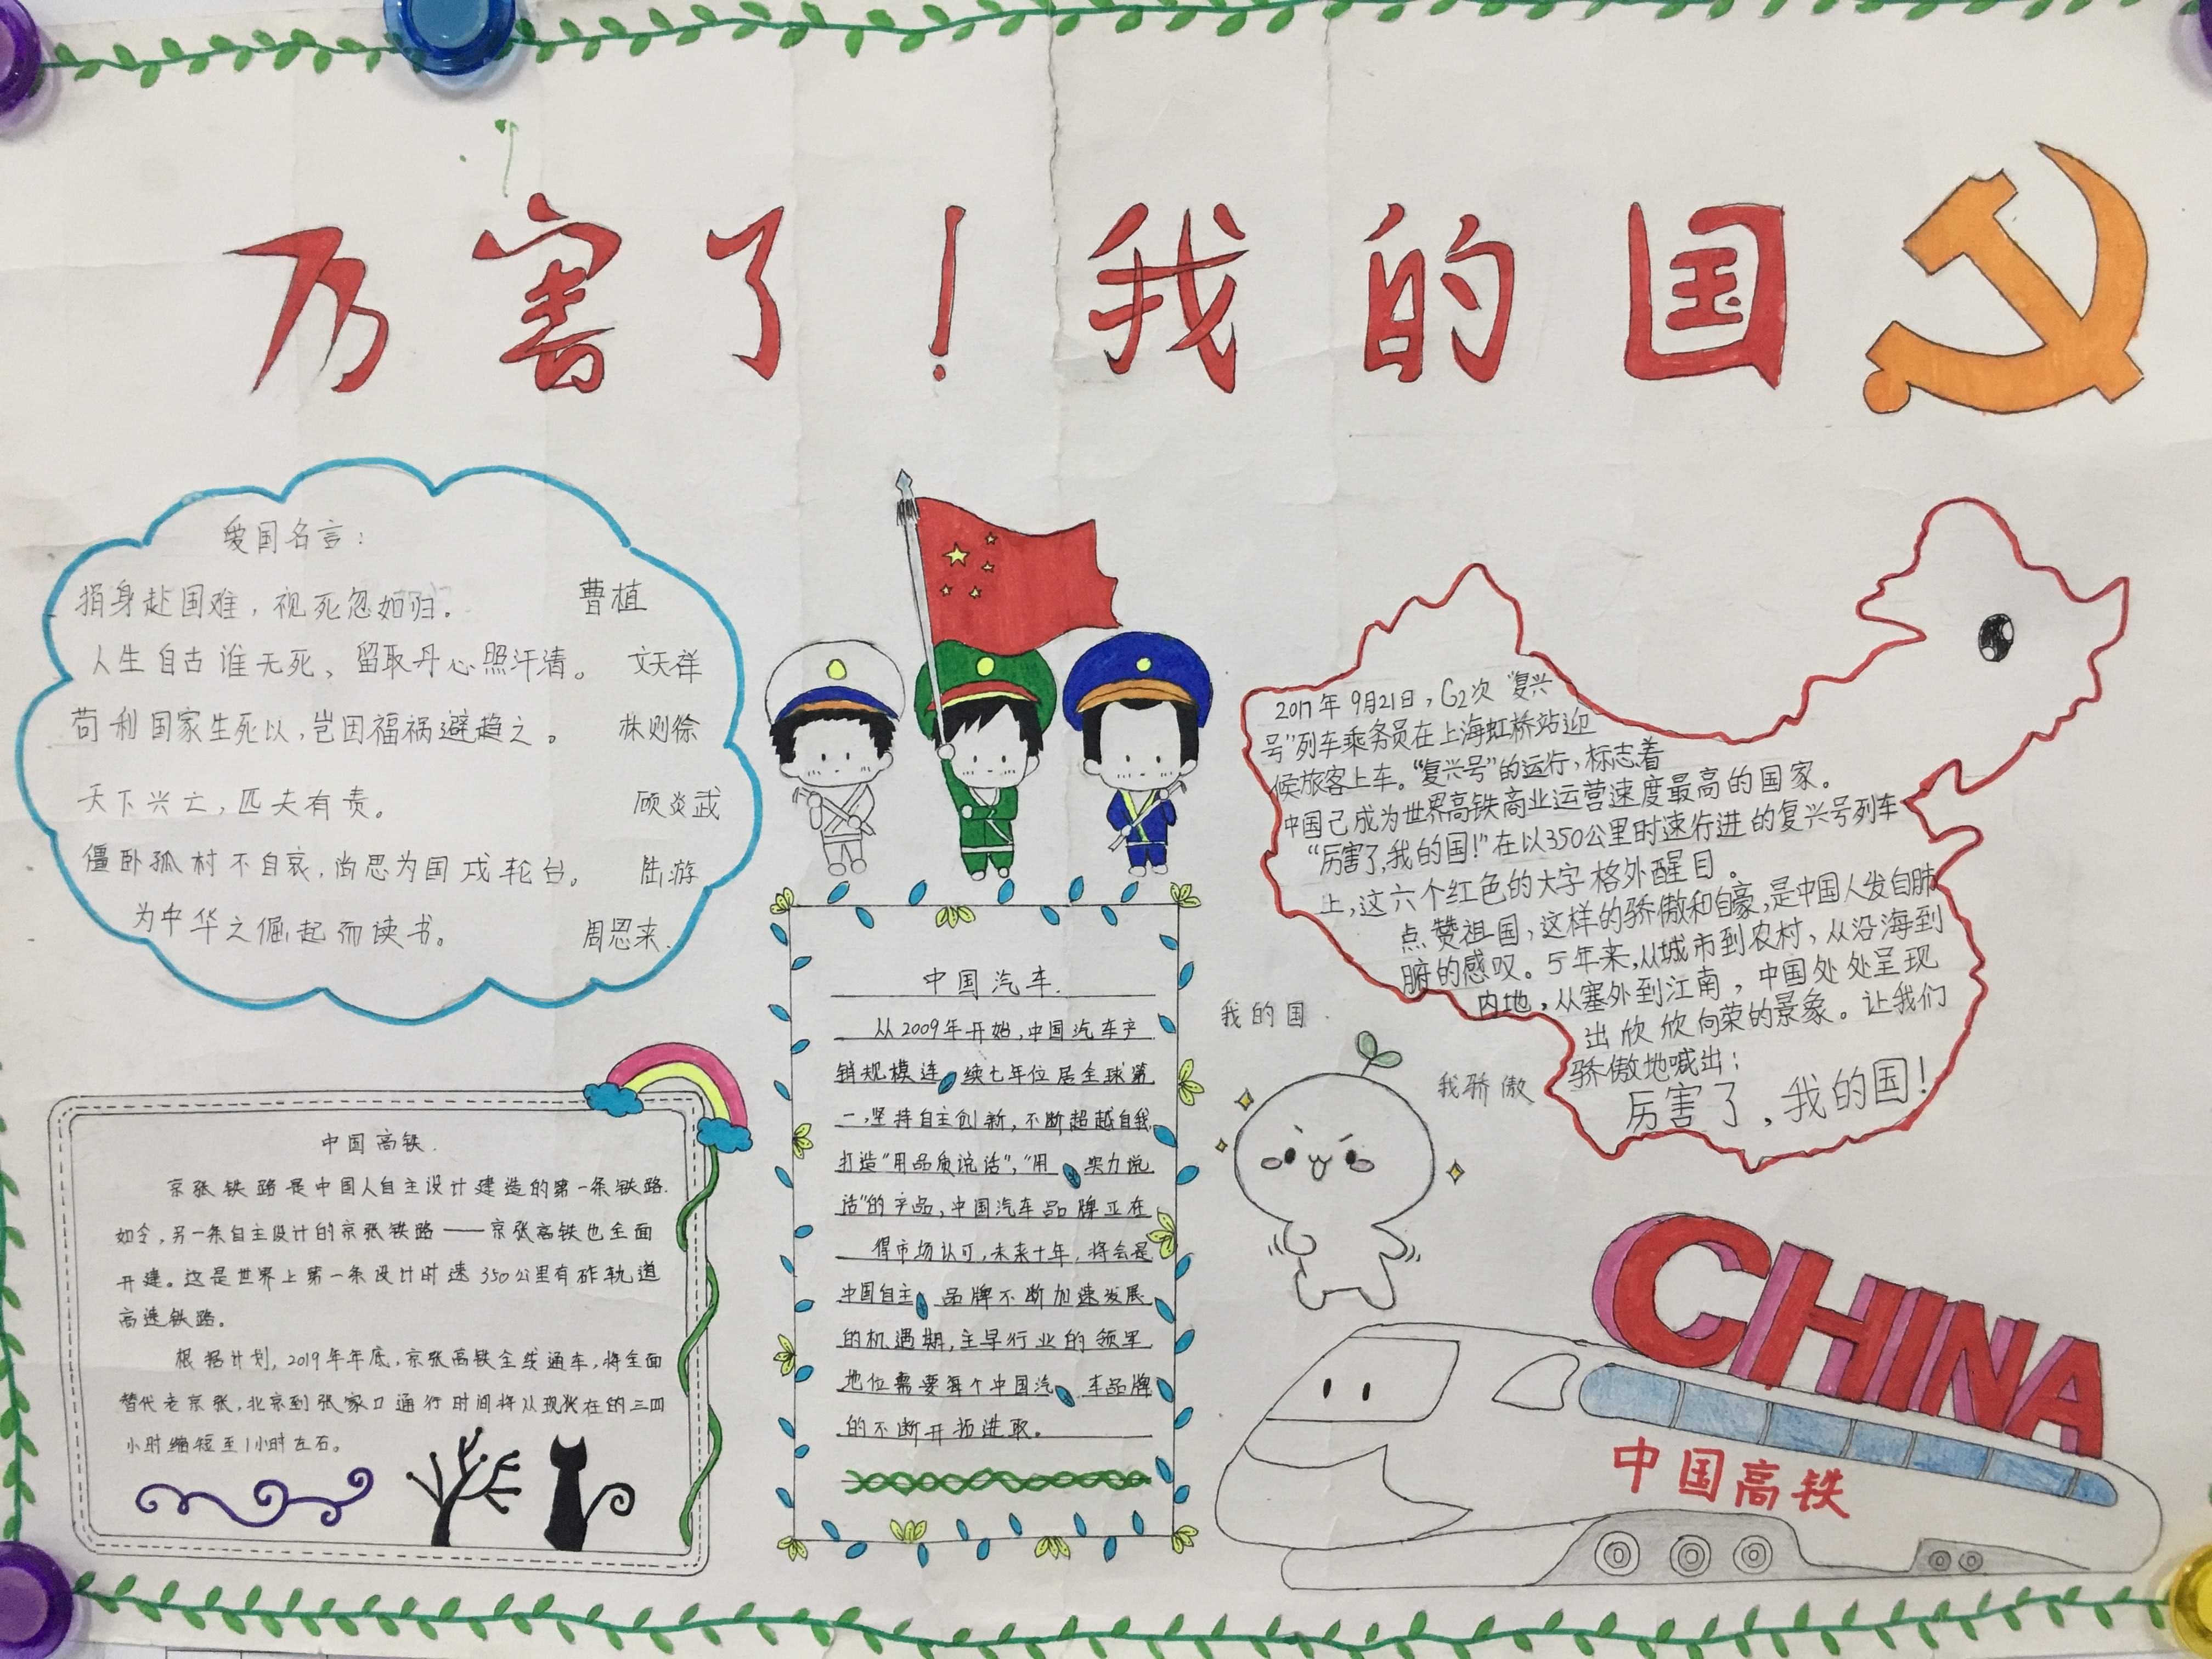 厉害了！我的国
爱国名言：
捐身赴国难，视死忽如归。 曹植
人生自古谁无死、留取丹心照汗清。 文天祥
苟利国家生死以，岂因福祸避趋之。 林则徐
天下兴亡，匹夫有责。 顾炎武
僵卧孤村不自哀，尚思为国戍轮台。 陆游
为中华之倔起而读书。 周恩来.
中国高铁.
京张铁路是中国人自主设计建造的第一条铁路.
如今，另一条自主设计的京张铁路——京张高铁也全面
开建。这是世界上第一条设计时速350公里有砟轨道
高速铁路。
根据计划，2019年年底，京张高铁全线通车，将全面
替代老京张，北京到张家口通行时间将从现在的三四
小时缩短至1小时左右。
中国汽车.
从2009年开始，中国汽车产
销规模连续七年位居全球第
一，坚持自主创新，不断超越自我
打造“用品质说话”，“用实力说
话”的产品，中国汽车品牌正在
得市场认可，未来十年，将会是
中国自主品牌不断加速发展
的机遇期，主导行业的领军
地位需要每个中国汽车品牌
的不断开拓进取。
2017年9月21日，G2次“复兴
号”列车乘务员在上海虹桥站迎
候旅客上车。“复兴号”的运行，标志着
中国已成为世界高铁商业运营速度最高的国家。
“厉害了，我的国！”在以350公里时速行进的复兴号列车
上，这六个红色的大字格外醒目。
点赞祖国，这样的骄傲和自豪，是中国人发自肺
腑的感叹。5年来，从城市到农村，从沿海到
内地，从塞外到江南，中国处处呈现
出欣欣向荣的景象。让我们
骄傲地喊出：
厉害了，我的国！
我的国.
我骄傲
CHINA
中国高铁